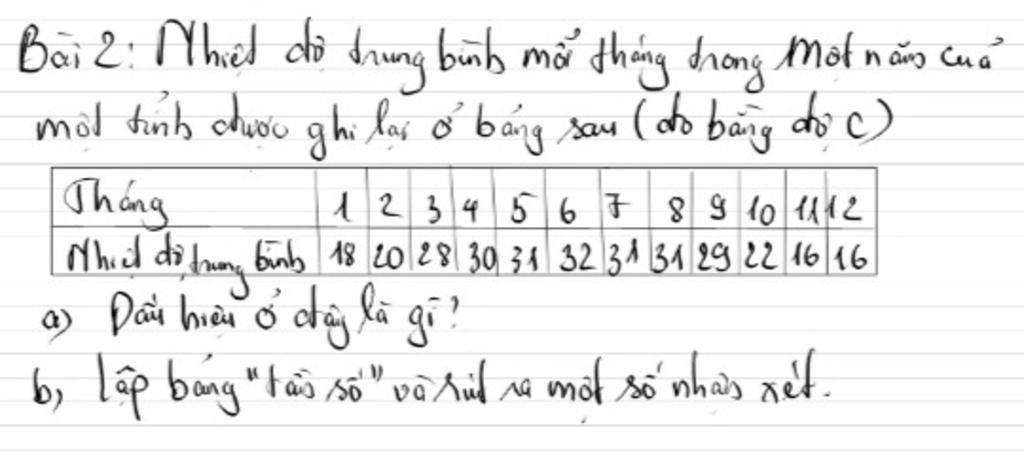 Bài 2: Nhiệt độ trung bình mỗi tháng trong một năm của
một tỉnh được ghi lại ở bảng sau (đo bằng độ C)
Tháng 1 2 3 4 5 6 7 8 9 10 11 12
Nhiệt độ trung bình 18 20 28 30 31 32 31 31 29 22 16 16
a) Dấu hiệu ở đây là gì?
b, Lập bảng "tần số" và rút ra một số nhận xét.